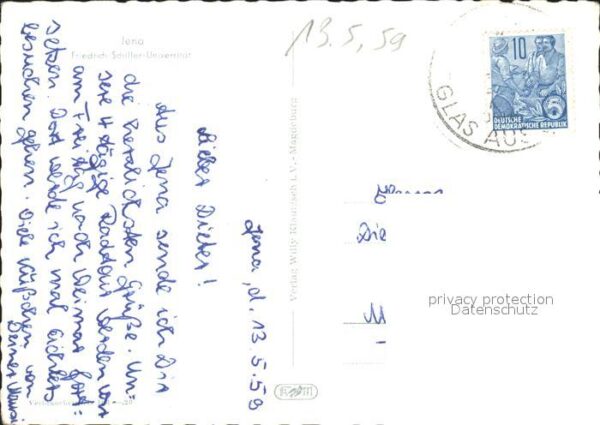 Jena
Friedrich Schiller-Universität
13.5.59
10
DEUTSCHE
DEMOKRATISCHE REPUBLIK
5
GLAS AUS
Jena, d. 13.5.59
Lieber Dieter!
Aus Jena sende ich Dir
die herzlichsten Grüße. Un-
sere 4 tägige Radtour werden wir
am Freitag nach Weimar fort-
setzen. Dort werde ich mal
besuchen gehen. Viele Küßchen von
Deiner
Verlag Willy Klautzsch i.V. - Magdeburg
Die
M
privacy protection
Datenschutz